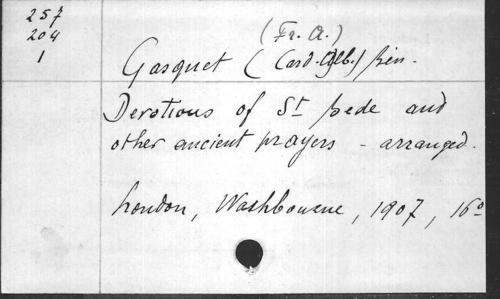 257
204
1
(Fr. A.)
Gasquet (Card. Alb.) Ben.
Devotions of St Bede and
other ancient prayers - arranged.
London, Washbourne, 1907, 16o